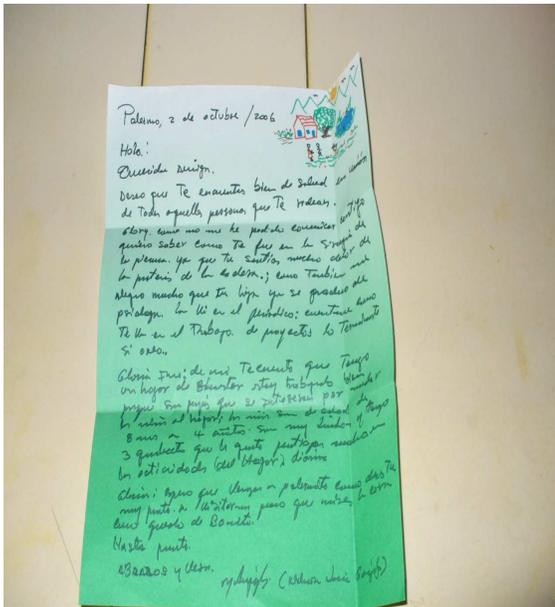 Palermo, 2 de octubre /2006
Hola!
Querida Amiga.
Deseo que Te encuentes bien de Salud en unión
de Todas aquellas personas que Te rodean.
Glory. como no me he podido comunicar contigo
quiero saber como Te fue en la Sirugía de
la pierna. ya que Tu sentias mucho dolor de
la de la cadera.; como Tambien me
alegro mucho que tu hija ya se graduo de
psicologa. la Vi en el periódico; cuentame como
Te Va en el Trabajo. de proyectos lo Terminaste
Si o no..
Gloria Ines; de mi Te cuento que Tengo
un hogar de Bienestar estoy trabajando bien
porque son papás que se interesan por mandar
los niños al hogar, los niños son de edad de
8 mes a 4 añitos son muy lindos y tengo
3 que le gusta participar mucho en
las actividades (del Hogar) diarias
Gloria: espero que Vengas a palermito cuando
muy pronto. a visitarnos para que mires la casa
como quedo de Bonita.
Hasta pronto.
ABRAZOS y Besos.